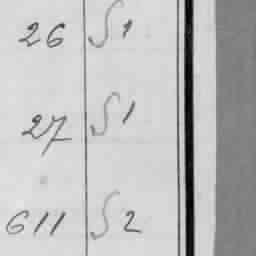 26 S 1
27 S 1
611 S 2